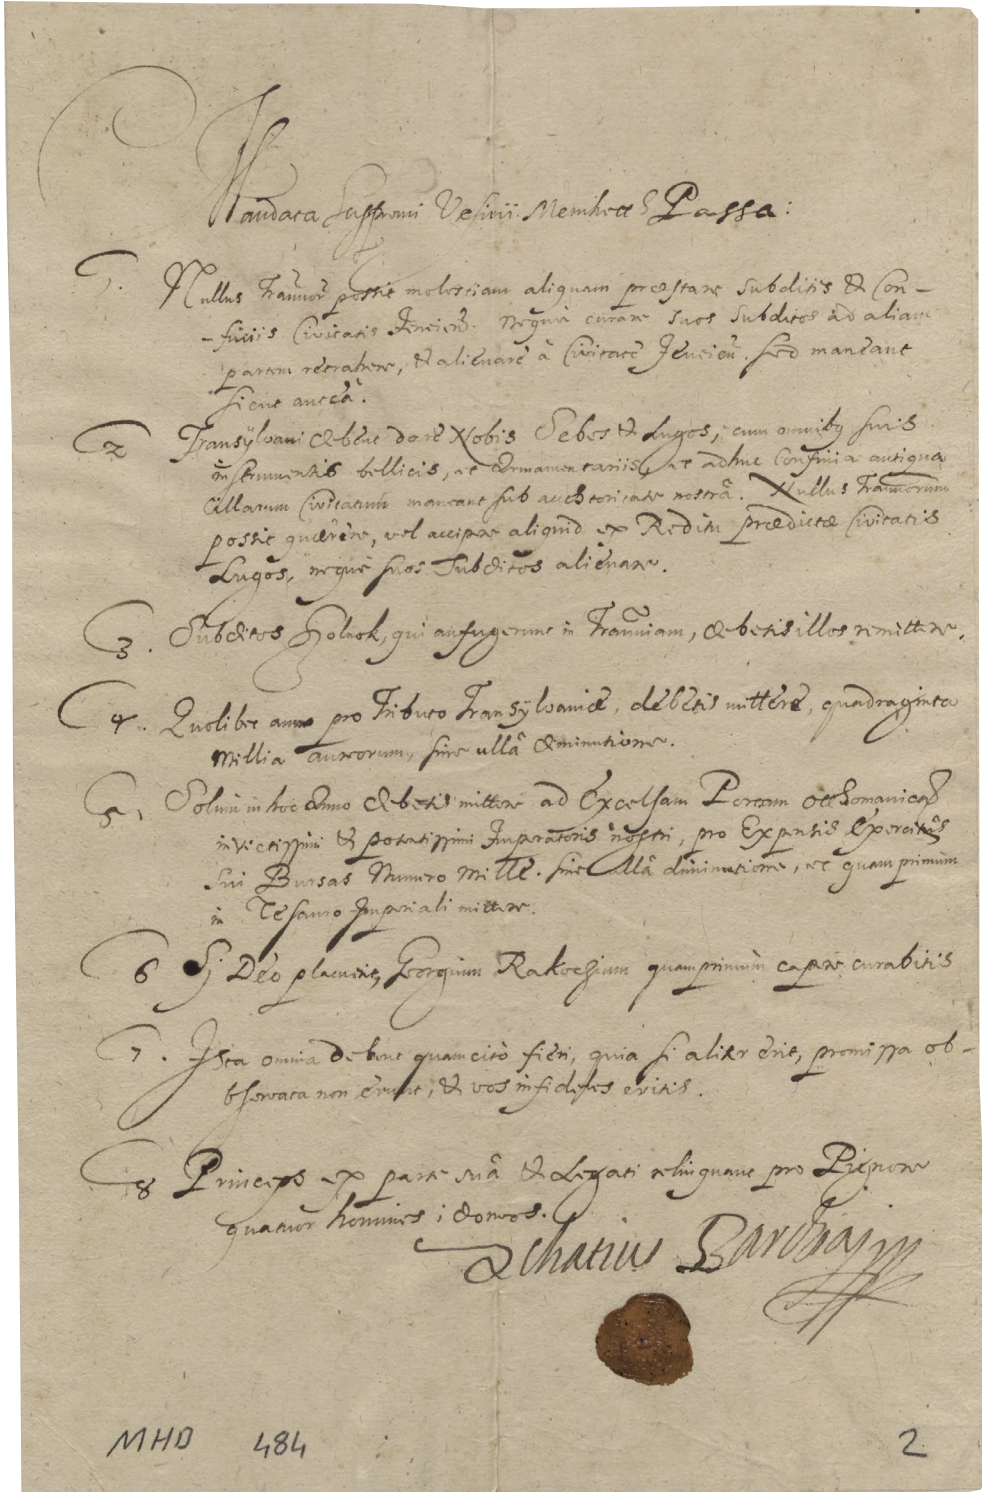 Mandata Suppremi Vesirii Memhett Passa:
1. Nullus Trannor possit molestiam aliquam præstare subditis & Con-
-finiis Civitatis Jeneiens. neque curare suos subditos ad aliam
partem retrahere, & alienare â Civitate Jeneien. sed maneant
sicut anteâ.
2 Transÿlvani debent dare Nobis Sebes & Lugos, cum omnibus suis
instrumentis bellicis, ac Armamentariis, ac adhuc Confinia antiqua
illarum Civitatum maneant sub aucthoritate nostrâ. Nullus Trannorum
possit quærere, vel accipere aliquid ex Reditu prædictæ Civitatis
Lugos, neque suos Subditos alienare.
3. Subditos Solnok, qui aufugerunt in Tranniam, debetis illos remittere.
4. Quolibet anno pro Tributo Transÿlvaniæ, debetis mittere, quadraginta
Millia aureorum, sine ullâ diminutione.
5. Solum in hoc Anno debetis mittere ad Excelsam Portam Otthomanicam
invictissimi & potentissimi Imperatoris nostri, pro Expensis Exercitûs
sui Bursas Numero Mille. sine ullâ diminutione, ac quam primum
in Tesauro Imperiali mittere.
6 Si Deo placuerit, Georgium Rakocsium quamprimum capere curabitis
7. Ista omnia debent quam citò fieri, quia si aliter erit, promissa ob-
bservata non erunt, & vos infideles eritis.
8 Princeps ex parte suâ & Legati relinquant pro Pignore
quatuor homines idoneos.
Achatius Barchaj
MHD 484 2